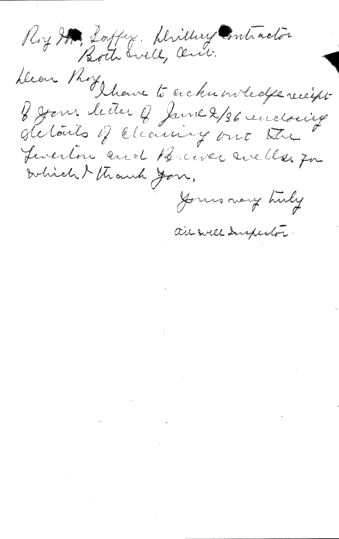 Roy Drilling Contractor
Bothwell, Ont.
Dear Roy,
I have to acknowledge receipt
of your letter of June 2/36 enclosing
details of cleaning out the
and Brewer wells for
which I thank you.
Yours very truly
Oil well Inspector